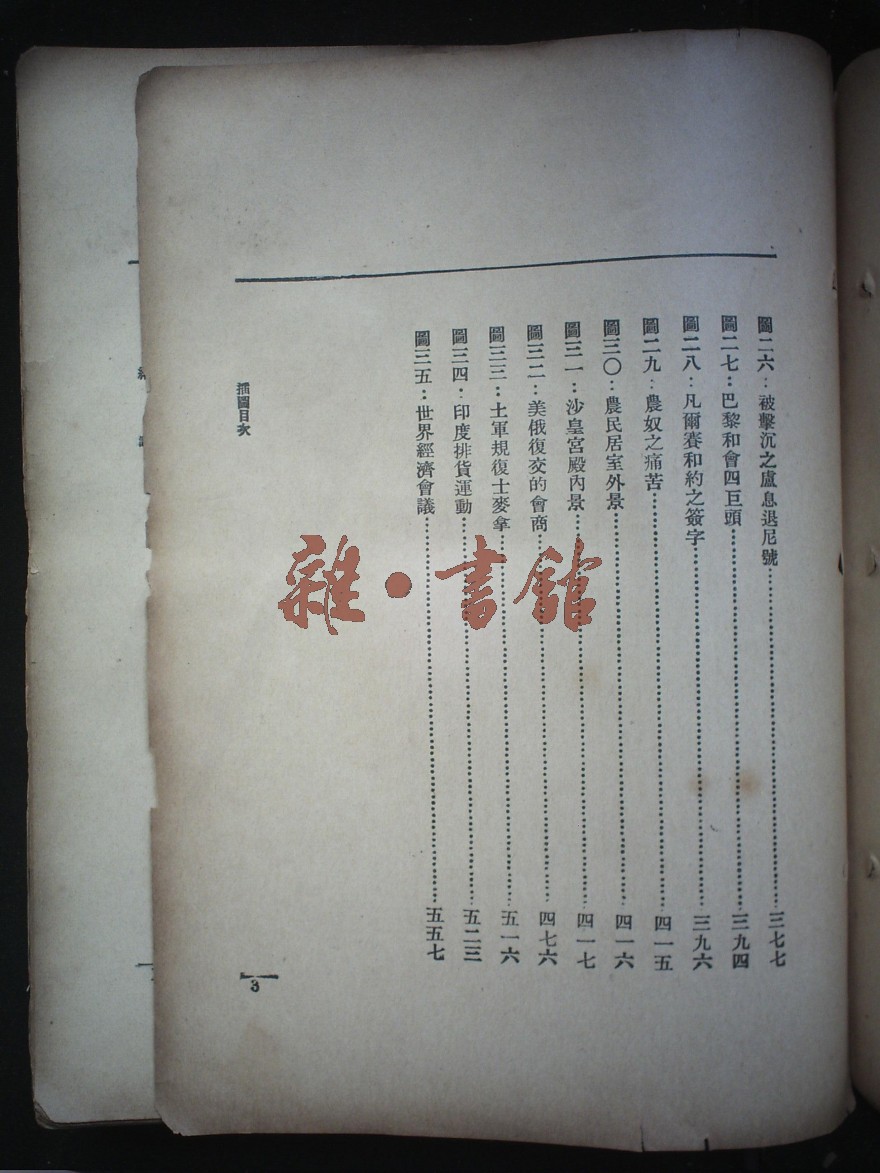 圖二六：被擊沉之盧息退尼號……………………三七七
圖二七：巴黎和會四巨頭……………………三九四
圖二八：凡爾賽和約之簽字……………………三九六
圖二九：農奴之痛苦……………………四一五
圖三〇：農民居室外景……………………四一六
圖三一：沙皇宮殿內景……………………四一七
圖三二：美俄復交的會商……………………四七六
圖三三：土軍規復士麥拿……………………五一六
圖三四：印度排貨運動……………………五二三
圖三五：世界經濟會議……………………五五七
插圖目次
3
雜·書館